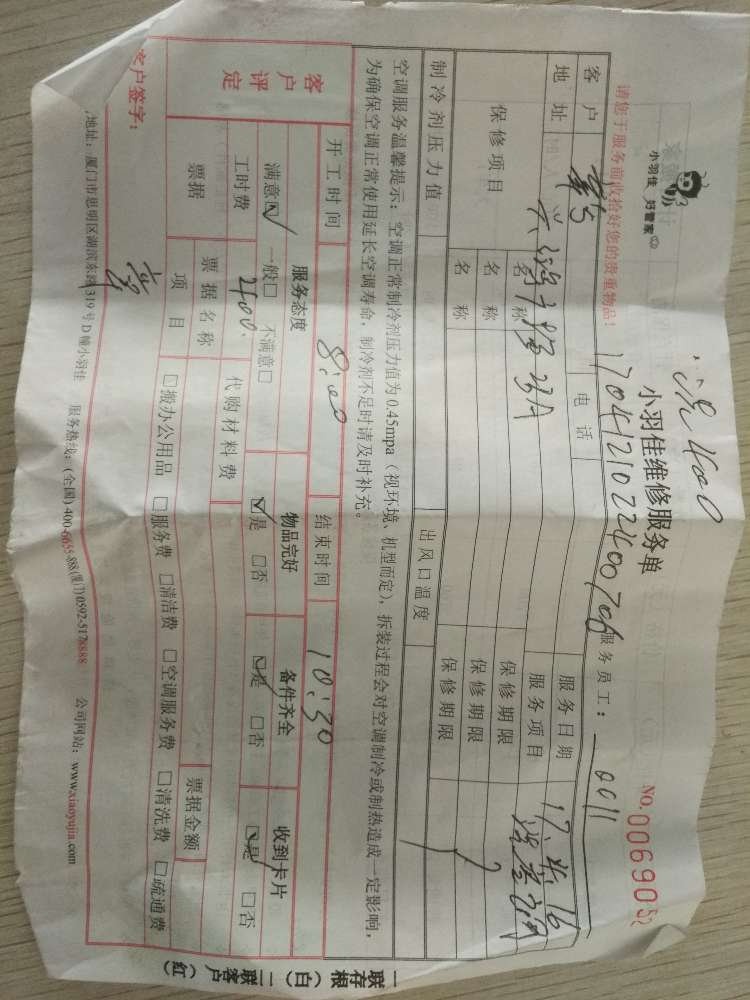 小羽佳 好管家
小羽佳维修服务单
No. 0069052
请您于服务前收拾好您的贵重物品!
170412102240070
服务员工: 0011
客户
电话
服务日期 17.4.16
地址
服务项目
保修项目
名称
保修期限
名称
保修期限
名称
保修期限
制冷剂压力值
出风口温度
空调服务温馨提示:空调正常制冷剂压力值为0.45mpa(视环境、机型而定),拆装过程会对空调制冷或制热造成一定影响,
为确保空调正常使用延长空调寿命,制冷剂不足时请及时补充。
开工时间 8:00
结束时间 10:30
客户评定
服务态度
物品完好
备件齐全
收到卡片
满意☑ 一般□ 不满意□
☑是 □否
☑是 □否
☑是 □否
工时费 2400.
代购材料费
票据
票据名称
票据金额
项目
□搬办公用品 □服务费 □清洁费 □空调服务费 □清洗费 □疏通费
客户签字:
地址:厦门市思明区湖滨东路319号D幢小羽佳 服务热线:(全国)400-6655-888(厦门)0592-5178888 公司网站:www.xiaoyujia.com
一联存根(白)二联客户(红)